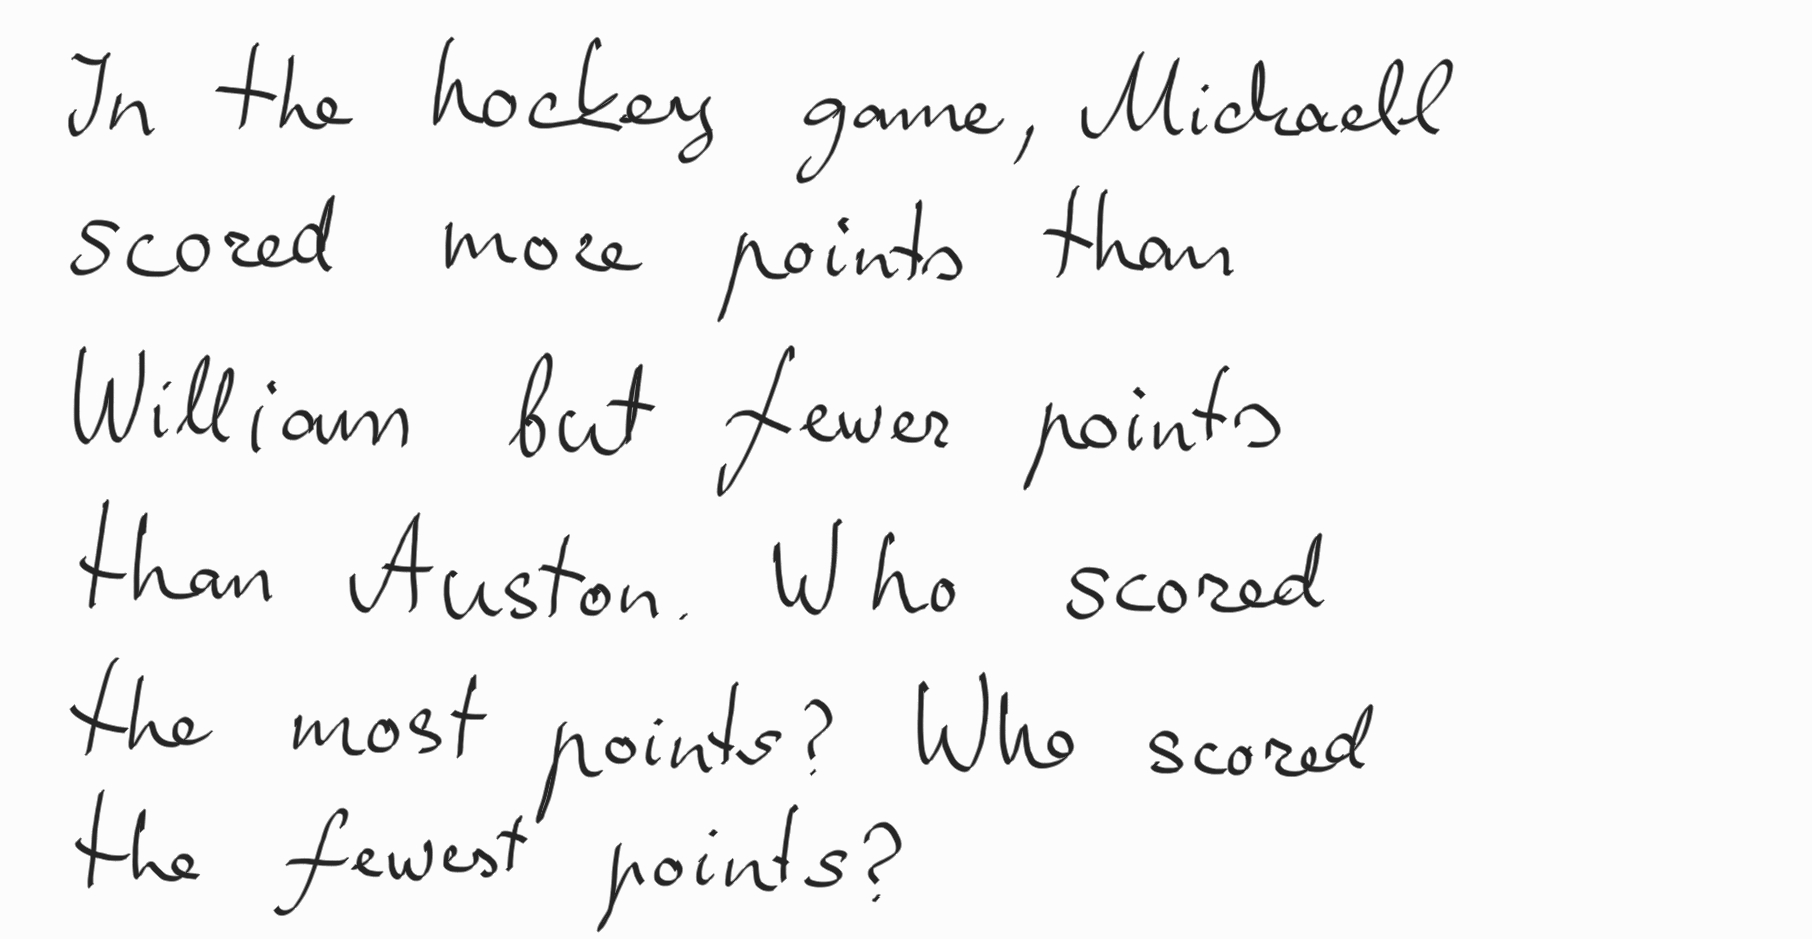 In the hockey game, Michaell
scored more points than
William but fewer points
than Auston. Who scored
the most points? Who scored
the fewest points?